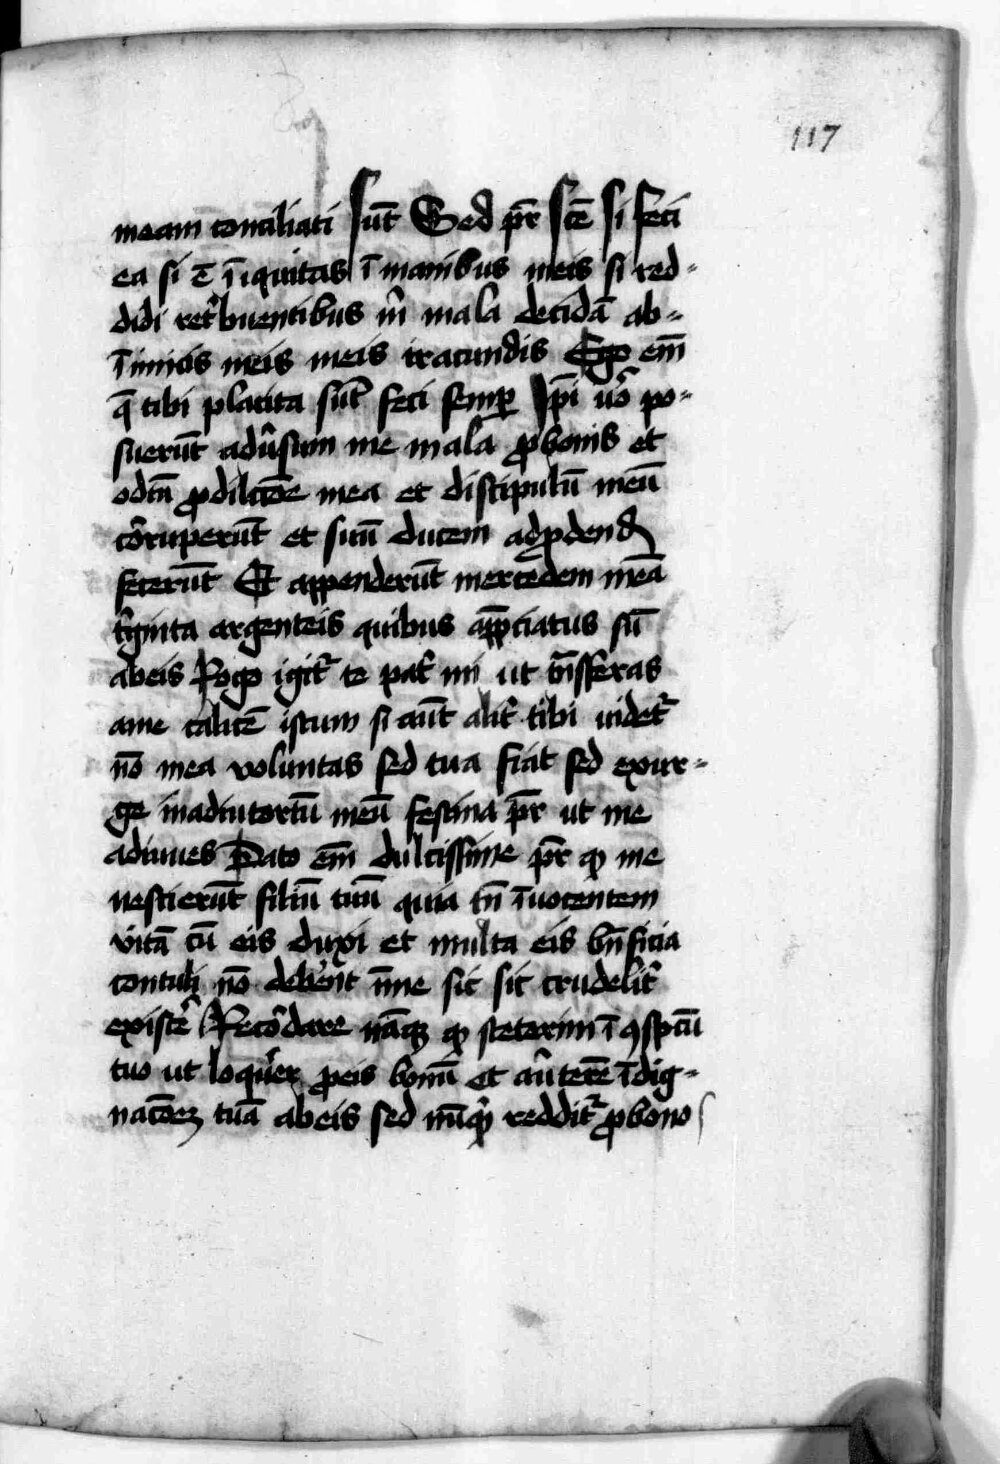 117
meam conciliati sūt Sed pr̄ scē si feci
ea si ē īiquitas ī manibus meis si red-
didi ret̉buentibus m̉ mala decidā ab-
īimicis meis meis iracundis Ego em̄
q̄ tibi placita sūt feci semꝑ Ip̄i vō po-
suerūt adūsum me mala ꝓbonis et
odiū ꝓdilcōe mea et discipulū meū
cōruperūt et suū ducem adꝓdend
fecerūt Et appenderūt mercedem meā
t̉ginta argenteis quibus app̄ciatus sū
abeis Rogo igit̉ te pat̉ mi ut trāsferas
ame calicē istum si aūt alit̉ tibi videt̉
nō mea voluntas sed tua fiat sed exur-
ge inadiutoriū meū festina pr̄ ut me
adiuves Pato em̄ dulcissime pr̄ ꝙ me
nescierūt filiū tuū quia tn̄ īnocentem
vitā cū eis duxi et multa eis bn̄ficia
contuli nō deberēt ī me sic sic crudelit̉
existē Recōdare nāqꝫ ꝙ steterim ī ꝯspcū
tuo ut loquer̉ ꝓeis bonū et av̉terē īdig-
nacōeꝫ tuā abeis sed nūqͥd reddit̉ ꝓbono